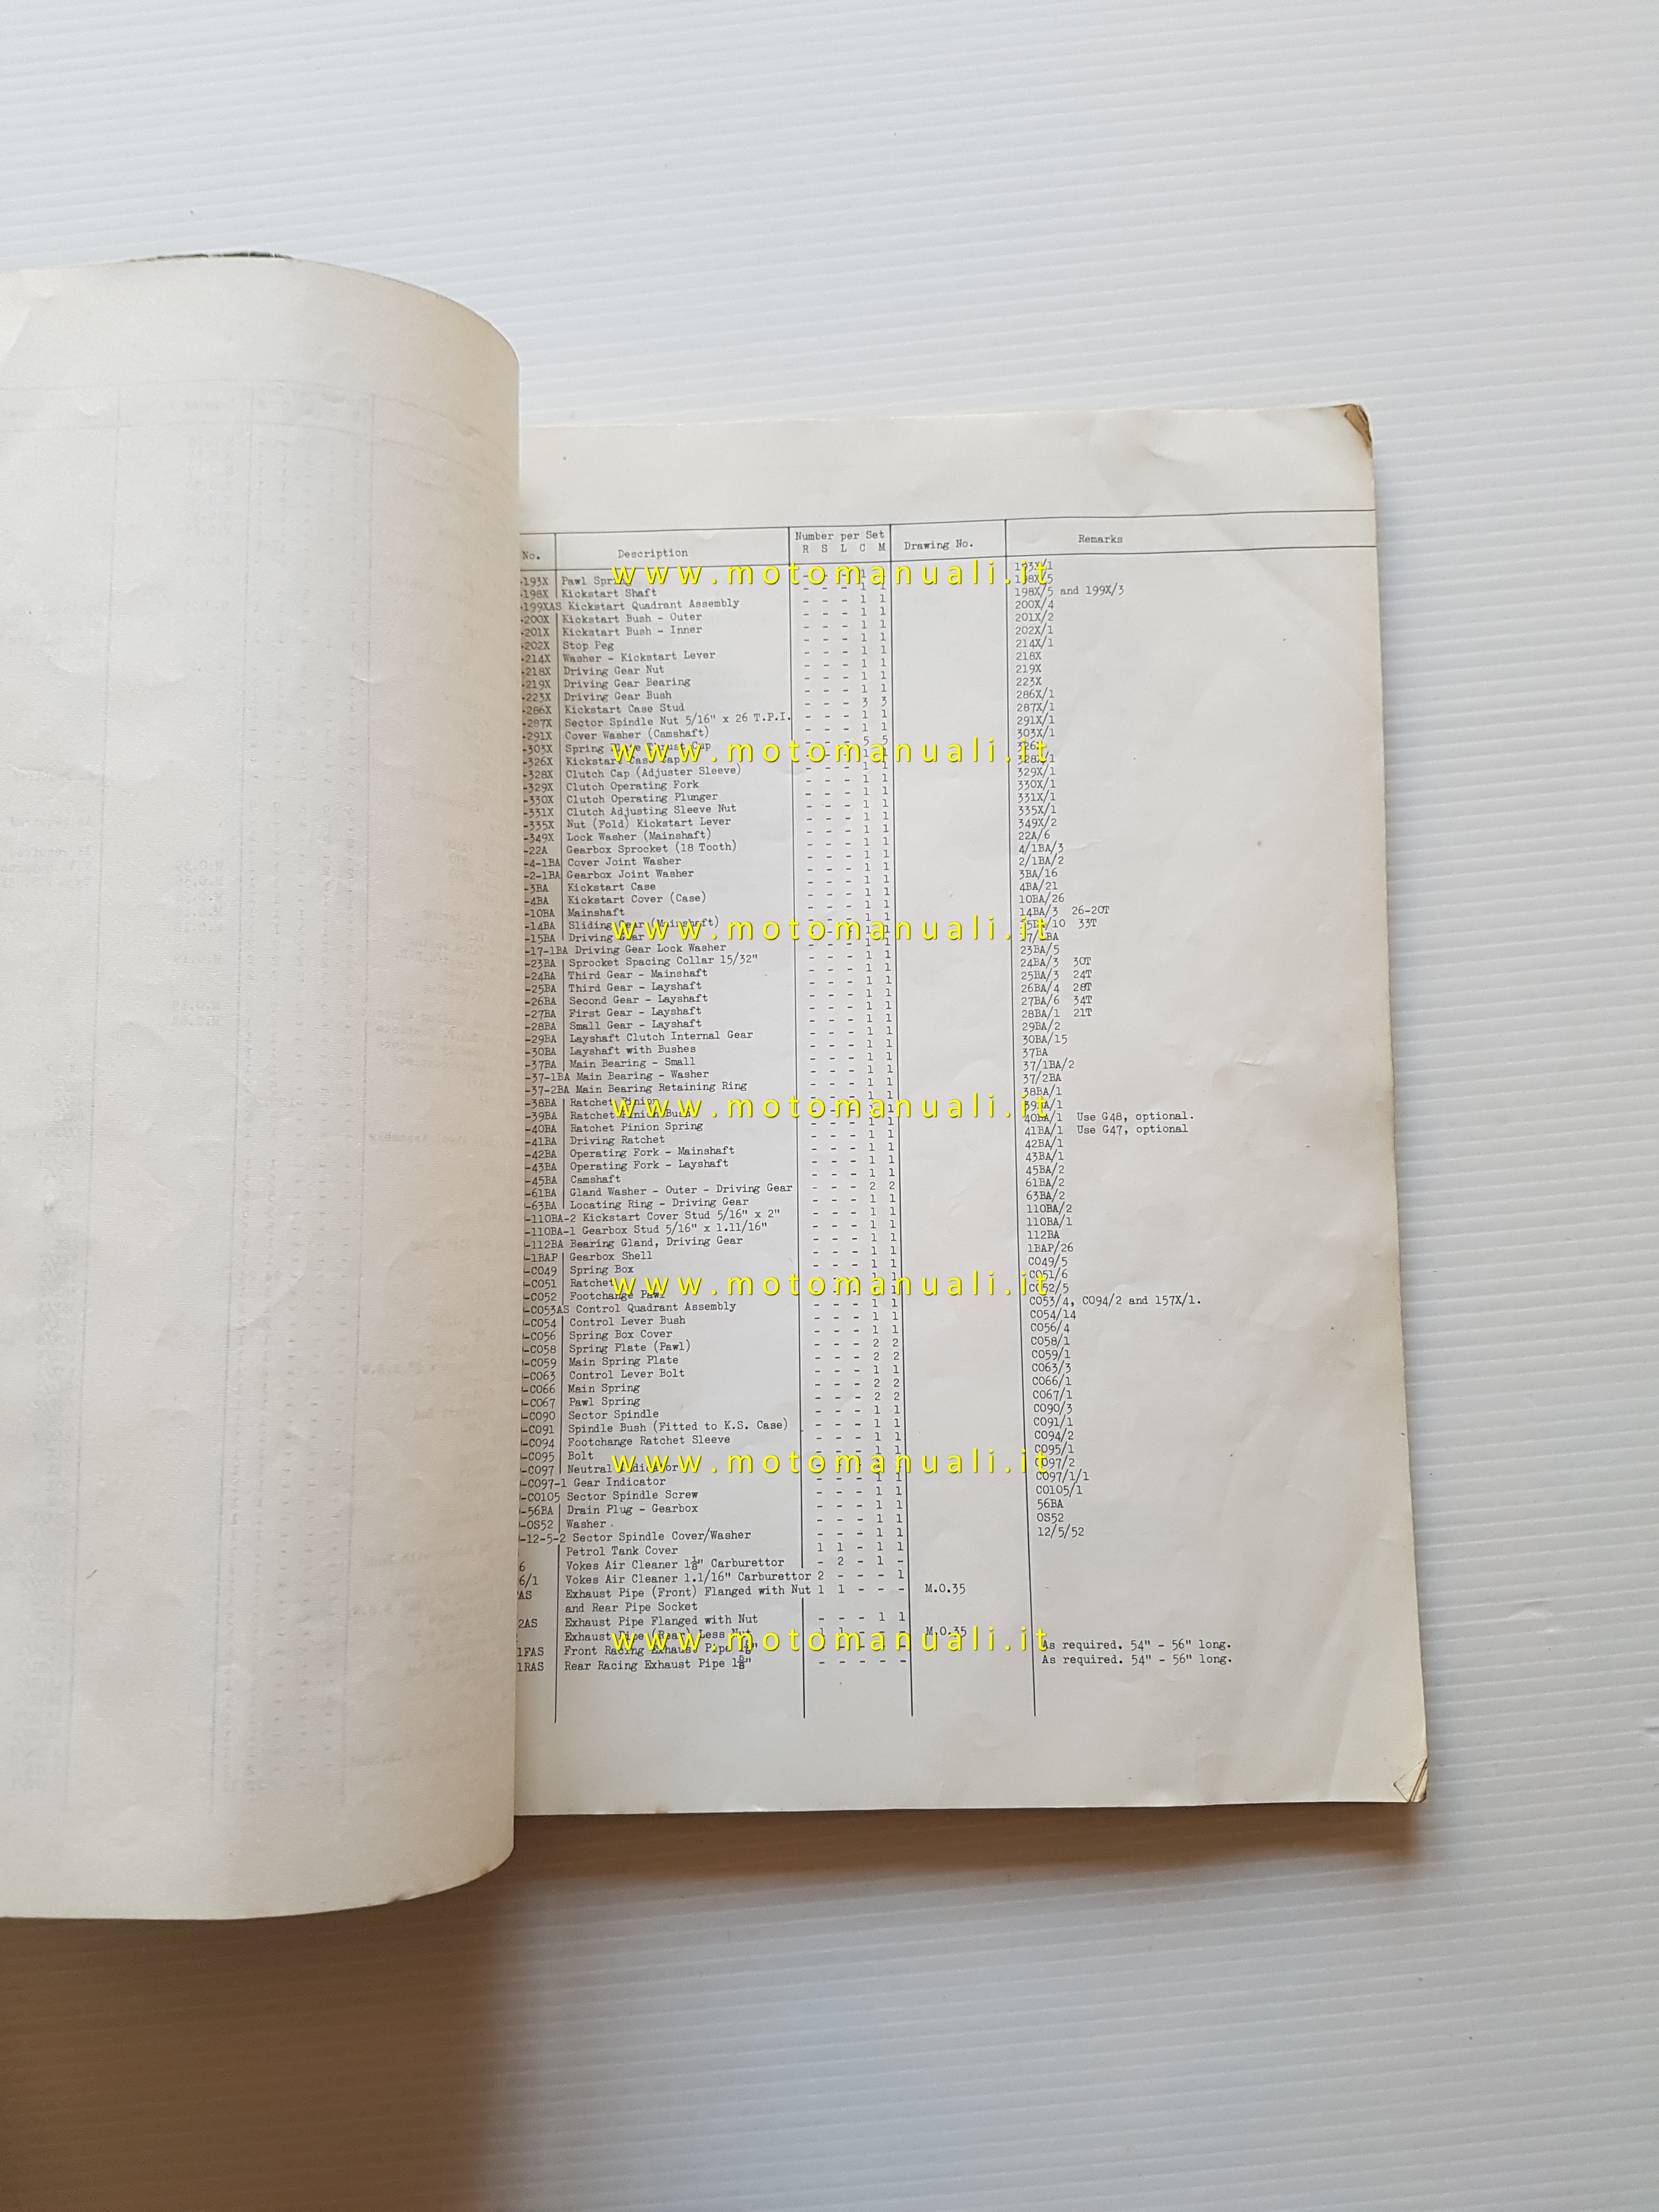 No. Description Number per Set Drawing No. Remarks
R S L C M
-193X Pawl Spring 193X/1
-198X Kickstart Shaft - - - 1 1 198X/5
-199XAS Kickstart Quadrant Assembly - - - 1 1 198X/5 and 199X/3
-200X Kickstart Bush - Outer - - - 1 1 200X/4
-201X Kickstart Bush - Inner - - - 1 1 201X/2
-202X Stop Peg - - - 1 1 202X/1
-214X Washer - Kickstart Lever - - - 1 1 214X/1
-218X Driving Gear Nut - - - 1 1 218X
-219X Driving Gear Bearing - - - 1 1 219X
-223X Driving Gear Bush - - - 1 1 223X
-286X Kickstart Case Stud - - - 3 3 286X/1
-287X Sector Spindle Nut 5/16" x 26 T.P.I. - - - 1 1 287X/1
-291X Cover Washer (Camshaft) - - - 1 1 291X/1
-303X Spring Cup - - - 5 5 303X/1
-326X Kickstart Case Cap 326X
-328X Clutch Cap (Adjuster Sleeve) - - - 1 1 328X/1
-329X Clutch Operating Fork - - - 1 1 329X/1
-330X Clutch Operating Plunger - - - 1 1 330X/1
-331X Clutch Adjusting Sleeve Nut - - - 1 1 331X/1
-335X Nut (Fold) Kickstart Lever - - - 1 1 335X/1
-349X Lock Washer (Mainshaft) - - - 1 1 349X/2
-22A Gearbox Sprocket (18 Tooth) - - - 1 1 22A/6
-4-1BA Cover Joint Washer - - - 1 1 4/1BA/3
-2-1BA Gearbox Joint Washer - - - 1 1 2/1BA/2
-3BA Kickstart Case - - - 1 1 3BA/16
-4BA Kickstart Cover (Case) - - - 1 1 4BA/21
-10BA Mainshaft - - - 1 1 10BA/26
-14BA Sliding Gear (Mainshaft) 14BA/3 26-20T
-15BA Driving Gear 15BA/10 33T
-17-1BA Driving Gear Lock Washer - - - 1 1 17/1BA
-23BA Sprocket Spacing Collar 15/32" - - - 1 1 23BA/5
-24BA Third Gear - Mainshaft - - - 1 1 24BA/3 30T
-25BA Third Gear - Layshaft - - - 1 1 25BA/3 24T
-26BA Second Gear - Layshaft - - - 1 1 26BA/4 28T
-27BA First Gear - Layshaft - - - 1 1 27BA/6 34T
-28BA Small Gear - Layshaft - - - 1 1 28BA/1 21T
-29BA Layshaft Clutch Internal Gear - - - 1 1 29BA/2
-30BA Layshaft with Bushes - - - 1 1 30BA/15
-37BA Main Bearing - Small - - - 1 1 37BA
-37-1BA Main Bearing - Washer - - - 1 1 37/1BA/2
-37-2BA Main Bearing Retaining Ring - - - 1 1 37/2BA
-38BA Ratchet Pinion 38BA/1
-39BA Ratchet Pinion Bush 39BA/1
-40BA Ratchet Pinion Spring - - - 1 1 40BA/1 Use G48, optional.
-41BA Driving Ratchet - - - 1 1 41BA/1 Use G47, optional
-42BA Operating Fork - Mainshaft - - - 1 1 42BA/1
-43BA Operating Fork - Layshaft - - - 1 1 43BA/1
-45BA Camshaft - - - 1 1 45BA/2
-61BA Gland Washer - Outer - Driving Gear - - - 2 2 61BA/2
-63BA Locating Ring - Driving Gear - - - 1 1 63BA/2
-110BA-2 Kickstart Cover Stud 5/16" x 2" - - - 1 1 110BA/2
-110BA-1 Gearbox Stud 5/16" x 1.11/16" - - - 1 1 110BA/1
-112BA Bearing Gland, Driving Gear - - - 1 1 112BA
-1BAP Gearbox Shell - - - 1 1 1BAP/26
-C049 Spring Box - - - 1 1 C049/5
-C051 Ratchet C051/6
-C052 Footchange Pawl C052/5
-C053AS Control Quadrant Assembly - - - 1 1 C053/4, C094/2 and 157X/1.
-C054 Control Lever Bush - - - 1 1 C054/14
-C056 Spring Box Cover - - - 1 1 C056/4
-C058 Spring Plate (Pawl) - - - 2 2 C058/1
-C059 Main Spring Plate - - - 2 2 C059/1
-C063 Control Lever Bolt - - - 1 1 C063/3
-C066 Main Spring - - - 2 2 C066/1
-C067 Pawl Spring - - - 2 2 C067/1
-C090 Sector Spindle - - - 1 1 C090/3
-C091 Spindle Bush (Fitted to K.S. Case) - - - 1 1 C091/1
-C094 Footchange Ratchet Sleeve - - - 1 1 C094/2
-C095 Bolt - - - 1 1 C095/1
-C097 Neutral Indicator C097/2
-C097-1 Gear Indicator - - - 1 1 C097/1/1
-C0105 Sector Spindle Screw - - - 1 1 C0105/1
-56BA Drain Plug - Gearbox - - - 1 1 56BA
-OS52 Washer - - - 1 1 OS52
-12-5-2 Sector Spindle Cover/Washer - - - 1 1 12/5/52
Petrol Tank Cover 1 1 - 1 1
6 Vokes Air Cleaner 1⅛" Carburettor - 2 - 1 -
6/1 Vokes Air Cleaner 1.1/16" Carburettor 2 - - - 1
AS Exhaust Pipe (Front) Flanged with Nut 1 1 - - - M.O.35
and Rear Pipe Socket
2AS Exhaust Pipe Flanged with Nut - - - 1 1
Exhaust Pipe (Rear) Less Nut 1 1 - - - M.O.35
1FAS Front Racing Exhaust Pipe - - - - - As required. 54" - 56" long.
1RAS Rear Racing Exhaust Pipe 1⅝" - - - - - As required. 54" - 56" long.
www.motomanuali.it
www.motomanuali.it
www.motomanuali.it
www.motomanuali.it
www.motomanuali.it
www.motomanuali.it
www.motomanuali.it